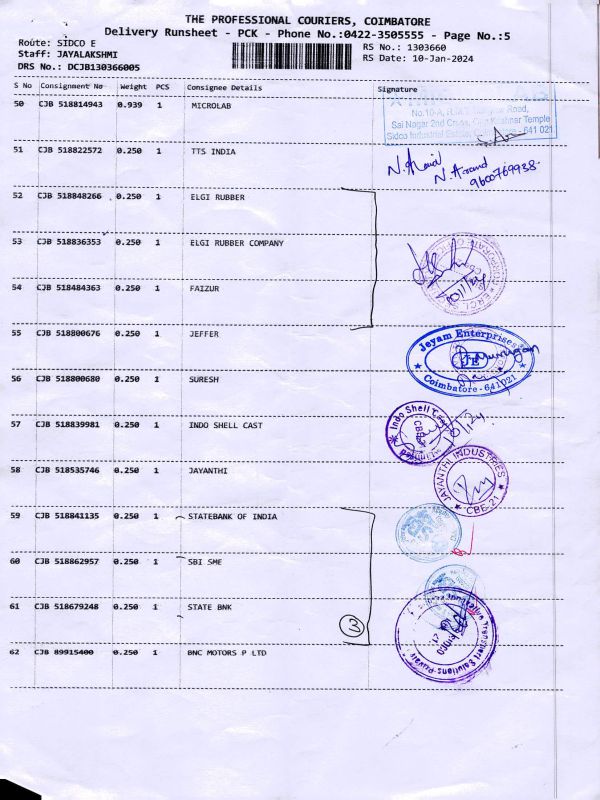 THE PROFESSIONAL COURIERS, COIMBATORE
Delivery Runsheet - PCK - Phone No.:0422-3505555 - Page No.:5
Route: SIDCO E
RS No.: 1303660
Staff: JAYALAKSHMI
RS Date: 10-Jan-2024
DRS No.: DCJB130366005
S No Consignment No Weight PCS Consignee Details Signature
50 CJB 518814943 0.939 1 MICROLAB
Sai Nagar 2nd Temple
Sidco Industrial 641 021
51 CJB 518822572 0.250 1 TTS INDIA
N. Anand
9600769938
52 CJB 518848266 0.250 1 ELGI RUBBER
53 CJB 518836353 0.250 1 ELGI RUBBER COMPANY
54 CJB 518484363 0.250 1 FAIZUR
55 CJB 518800676 0.250 1 JEFFER
Jeyam Enterprises
JE
Coimbatore - 641 021
56 CJB 518800680 0.250 1 SURESH
57 CJB 518839981 0.250 1 INDO SHELL CAST
Indo Shell
58 CJB 518535746 0.250 1 JAYANTHI
JAYANTHI INDUSTRIES
CBE-21
59 CJB 518841135 0.250 1 STATEBANK OF INDIA
60 CJB 518862957 0.250 1 SBI SME
61 CJB 518679248 0.250 1 STATE BNK
3
62 CJB 89915400 0.250 1 BNC MOTORS P LTD
Transport Solutions